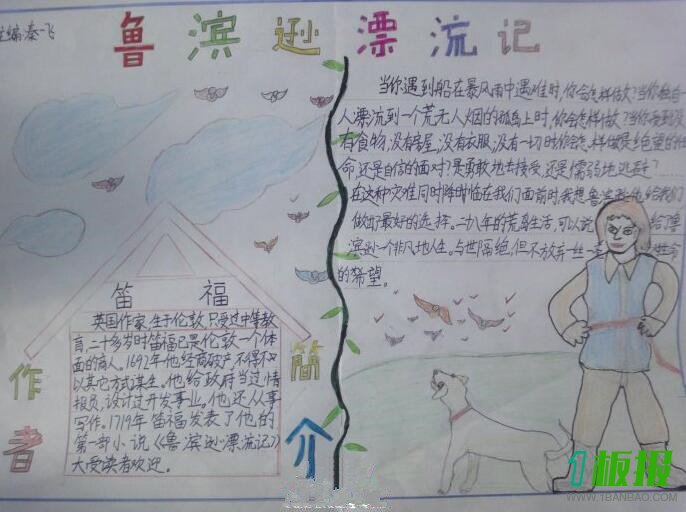 主编:秦一飞
鲁滨逊漂流记
笛福
英国作家,生于伦敦,只受过中等教
育,二十多岁时笛福已是伦敦一个体
面的商人。1692年他经商破产,不得不
以其它方式谋生。他给政府当过情
报员,设计过开发事业。他还从事
写作。1719年笛福发表了他的
第一部小说《鲁滨逊漂流记》
大受读者欢迎。
作者
简介
当你遇到船在暴风雨中遇难时,你会怎样做?当你独自一
人漂流到一个荒无人烟的孤岛上时,你会怎样做?当你
有食物,没有房屋,没有衣服,没有一切时你会怎样做是绝望的
命,还是自信的面对?是勇敢地去接受,还是懦弱地逃走?
在这种灾难同时降临在我们面前时,我想鲁滨逊他给我们
做出了最好的选择。二八年的荒岛生活,可以说 给鲁
滨逊一个非凡地人生。与世隔绝,但不放弃一丝一 生命
的希望。
1板报
WWW.1BANBAO.COM